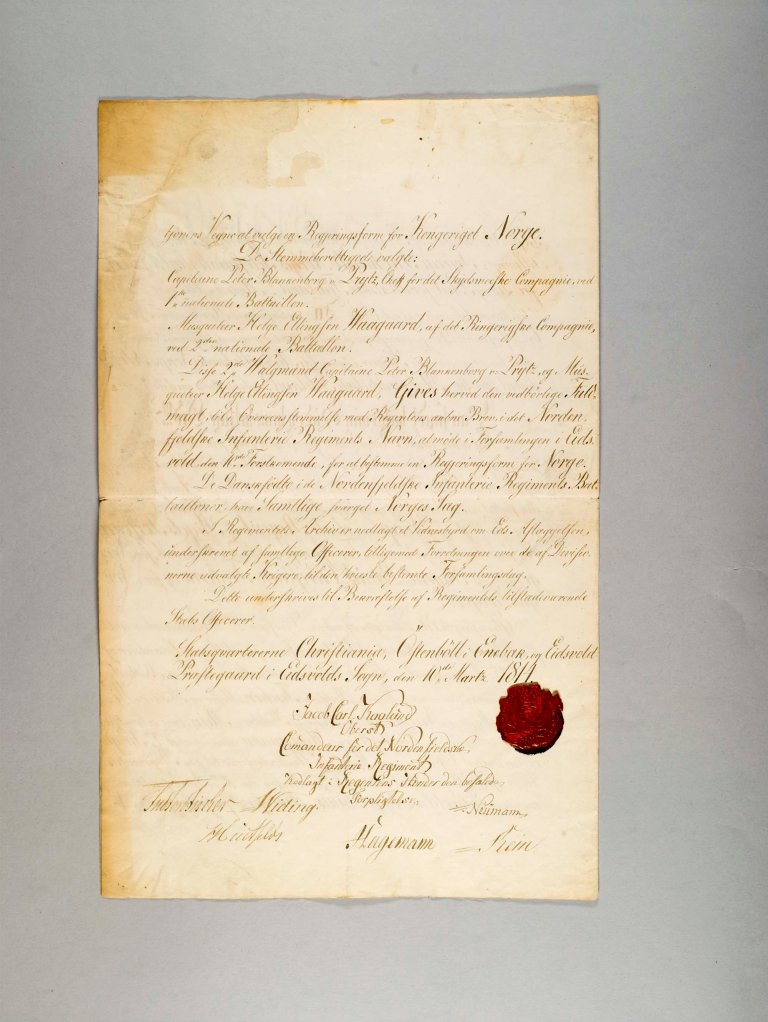 Vegne at vælge en Regjeringsform for Kongeriget Norge.
De Stemmeberettigede valgte:
Capitaine Peter Blankenborg v. Prytz, Cheff for det Compagnie, ved
1ste nationale Battaillon.
Musqueteer Helge Ellingsen Waagaard, af det Ringerigske Compagnie,
ved 2den nationale Battaillon.
Disse 2de Valgmænd Capitaine Peter Blankenborg v. Prytz, og Mus-
queteer Helge Ellingsen Waagaard, Gives herved den nødtørtige Fuld-
magt, til i Overeensstemmelse med Regentens aabne Brev, i det Norden-
fjeldske Infanterie Regiments Navn, at møde i Forsamlingen i Eids-
vold, den 10de Førstkomende, for at bestemme en Regjeringsform for Norge.
De Danskfødte i de Nordenfjeldske Infanterie Regiments Bat-
tailloner, have Samtlige svoret Norges Sag.
I Regimentets Archiv er nedlagt et om Eds Aflæggelsen,
underskrevet af samtlige Officerer, tilligemed Forretningen over de af Divisio-
norne udvalgte Krigere, til den bestemte Forsamlingsdag.
Dette underskrives til Bekræftelse af Regimentets tilstedeværende
Stabs Officerer.
Stabsqvartererne Christiania, i Enebak, og Eidsvold
Præstegaard i Eidsvolds Sogn, den 10de Martz 1814
Jacob Carl
Oberst
Comandeur for det Nordenfieldske
Infanterie Regiment
i Regentens Hænder den befalede
Forpligtelse
Widing. Neumann
Hagemann Rein